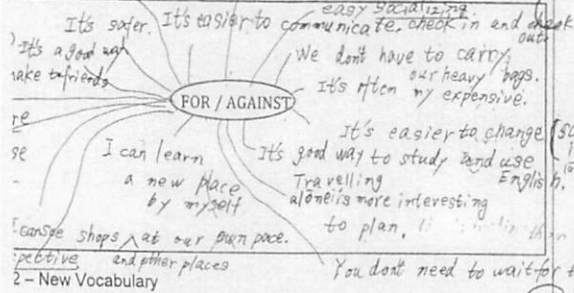 easy socializing.
It's safer. It's easier to communicate, check in and check out.
It's a good way
make friends
We don't have to carry
our heavy bags.
It's often expensive.
FOR / AGAINST
re
It's easier to change
se
I can learn
a new place
by myself
It's good way to study and use English.
Travelling
alone is more interesting
to plan.
I can see shops and other places at our own pace.
pective
You don't need to wait for
2 – New Vocabulary